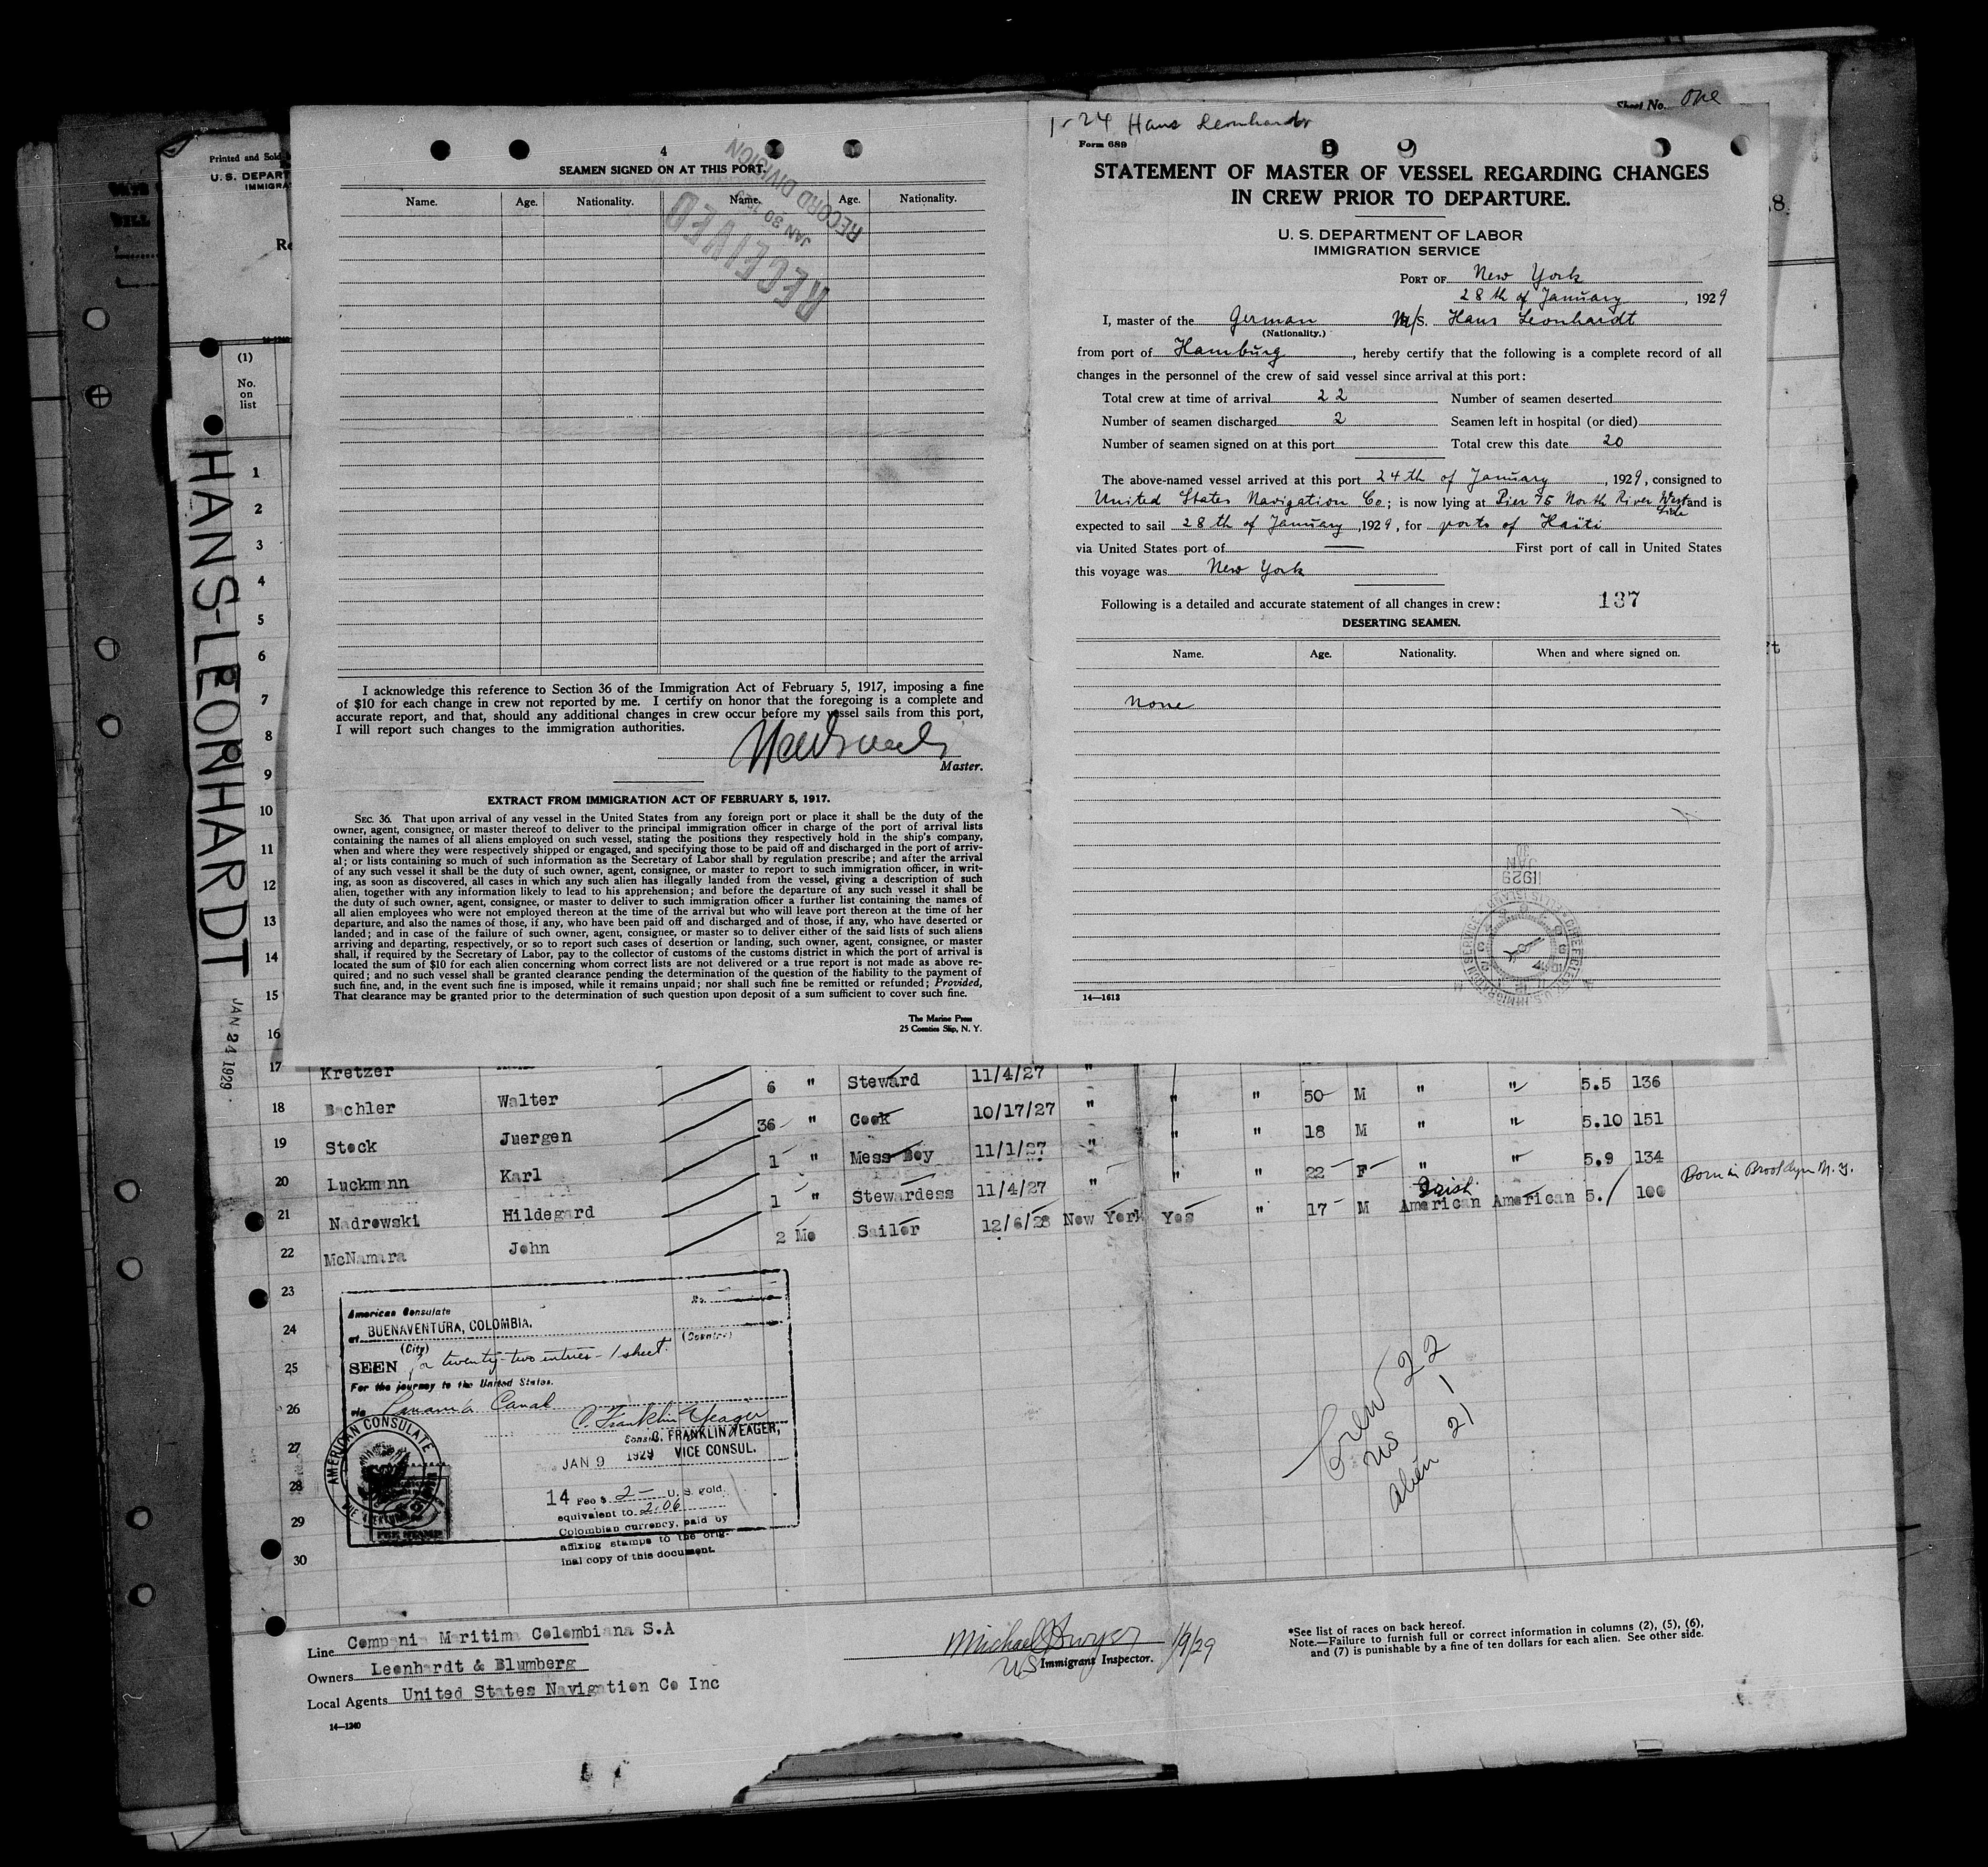 Sheet No. One
Printed and Sold
U. S. DEPART
IMMIGRA
(1)
No.
on
list
HANS-LEONHARDT
JAN 24 1929
4
SEAMEN SIGNED ON AT THIS PORT.
Name. Age. Nationality. Name. Age. Nationality.
RECEIVED
JAN 30 1929
RECORD DIVISION
I acknowledge this reference to Section 36 of the Immigration Act of February 5, 1917, imposing a fine
of $10 for each change in crew not reported by me. I certify on honor that the foregoing is a complete and
accurate report, and that, should any additional changes in crew occur before my vessel sails from this port,
I will report such changes to the immigration authorities.
Master.
EXTRACT FROM IMMIGRATION ACT OF FEBRUARY 5, 1917.
SEC. 36. That upon arrival of any vessel in the United States from any foreign port or place it shall be the duty of the
owner, agent, consignee, or master thereof to deliver to the principal immigration officer in charge of the port of arrival lists
containing the names of all aliens employed on such vessel, stating the positions they respectively hold in the ship's company,
when and where they were respectively shipped or engaged, and specifying those to be paid off and discharged in the port of arriv-
al; or lists containing so much of such information as the Secretary of Labor shall by regulation prescribe; and after the arrival
of any such vessel it shall be the duty of such owner, agent, consignee, or master to report to such immigration officer, in writ-
ing, as soon as discovered, all cases in which any such alien has illegally landed from the vessel, giving a description of such
alien, together with any information likely to lead to his apprehension; and before the departure of any such vessel it shall be
the duty of such owner, agent, consignee, or master to deliver to such immigration officer a further list containing the names of
all alien employees who were not employed thereon at the time of the arrival but who will leave port thereon at the time of her
departure, and also the names of those, if any, who have been paid off and discharged and of those, if any, who have deserted or
landed; and in case of the failure of such owner, agent, consignee, or master so to deliver either of the said lists of such aliens
arriving and departing, respectively, or so to report such cases of desertion or landing, such owner, agent, consignee, or master
shall, if required by the Secretary of Labor, pay to the collector of customs of the customs district in which the port of arrival is
located the sum of $10 for each alien concerning whom correct lists are not delivered or a true report is not made as above re-
quired; and no such vessel shall be granted clearance pending the determination of the question of the liability to the payment of
such fine, and, in the event such fine is imposed, while it remains unpaid; nor shall such fine be remitted or refunded; Provided,
That clearance may be granted prior to the determination of such question upon deposit of a sum sufficient to cover such fine.
The Marine Press
25 Coenties Slip, N. Y.
1-24 Hans Leonhardt
Form 689
STATEMENT OF MASTER OF VESSEL REGARDING CHANGES
IN CREW PRIOR TO DEPARTURE.
U. S. DEPARTMENT OF LABOR
IMMIGRATION SERVICE
PORT OF New York
28th of January, 1929
I, master of the German M/S. Hans Leonhardt
(Nationality.)
from port of Hamburg, hereby certify that the following is a complete record of all
changes in the personnel of the crew of said vessel since arrival at this port:
Total crew at time of arrival 22 Number of seamen deserted
Number of seamen discharged 2 Seamen left in hospital (or died)
Number of seamen signed on at this port Total crew this date 20
The above-named vessel arrived at this port 24th of January, 1929, consigned to
United States Navigation Co; is now lying at Pier 75 North River West Side and is
expected to sail 28th of January, 1929, for ports of Haïti
via United States port of — First port of call in United States
this voyage was New York
Following is a detailed and accurate statement of all changes in crew: 137
DESERTING SEAMEN.
Name. Age. Nationality. When and where signed on.
None
1929
JAN
30
14—1613
1
2
3
4
5
6
7
8
9
10
11
12
13
14
15
16
17 Kretzer 6 " Steward 11/4/27 "
18 Bachler Walter 36 " Cook 10/17/27 " " " 50 M " " 5.5 136
19 Stock Juergen 1 " Mess Boy 11/1/27 " " " 18 M " " 5.10 151
20 Luckmann Karl 1 " Stewardess 11/4/27 " " " 22 F " " 5.9 134
21 Nadrowski Hildegard 2 Mo Sailor 12/6/28 New York Yes " 17 M Irish American American 5. 100 Born in Brooklyn N.Y.
22 McNamara John
23
24
25
26
27
28
29
30
American Consulate No.
at BUENAVENTURA, COLOMBIA.
(City) (Country)
SEEN for twenty-two entries - 1 sheet.
For the journey to the United States.
via Panama Canal
C. Franklin Yeager
C. FRANKLIN YEAGER,
JAN 9 1929 VICE CONSUL.
AMERICAN CONSULATE
14 Fee $ 2- U. S. gold,
equivalent to 2.06
Colombian currency, paid by
affixing stamps to the orig-
inal copy of this document.
Crew 22
US 1
Alien 21
Line Compania Maritima Colombiana S.A
Owners Leonhardt & Blumberg
Local Agents United States Navigation Co Inc
14—1240
Michael Dwyer 1/9/29
US Immigrant Inspector.
*See list of races on back hereof.
Note.—Failure to furnish full or correct information in columns (2), (5), (6),
and (7) is punishable by a fine of ten dollars for each alien. See other side.